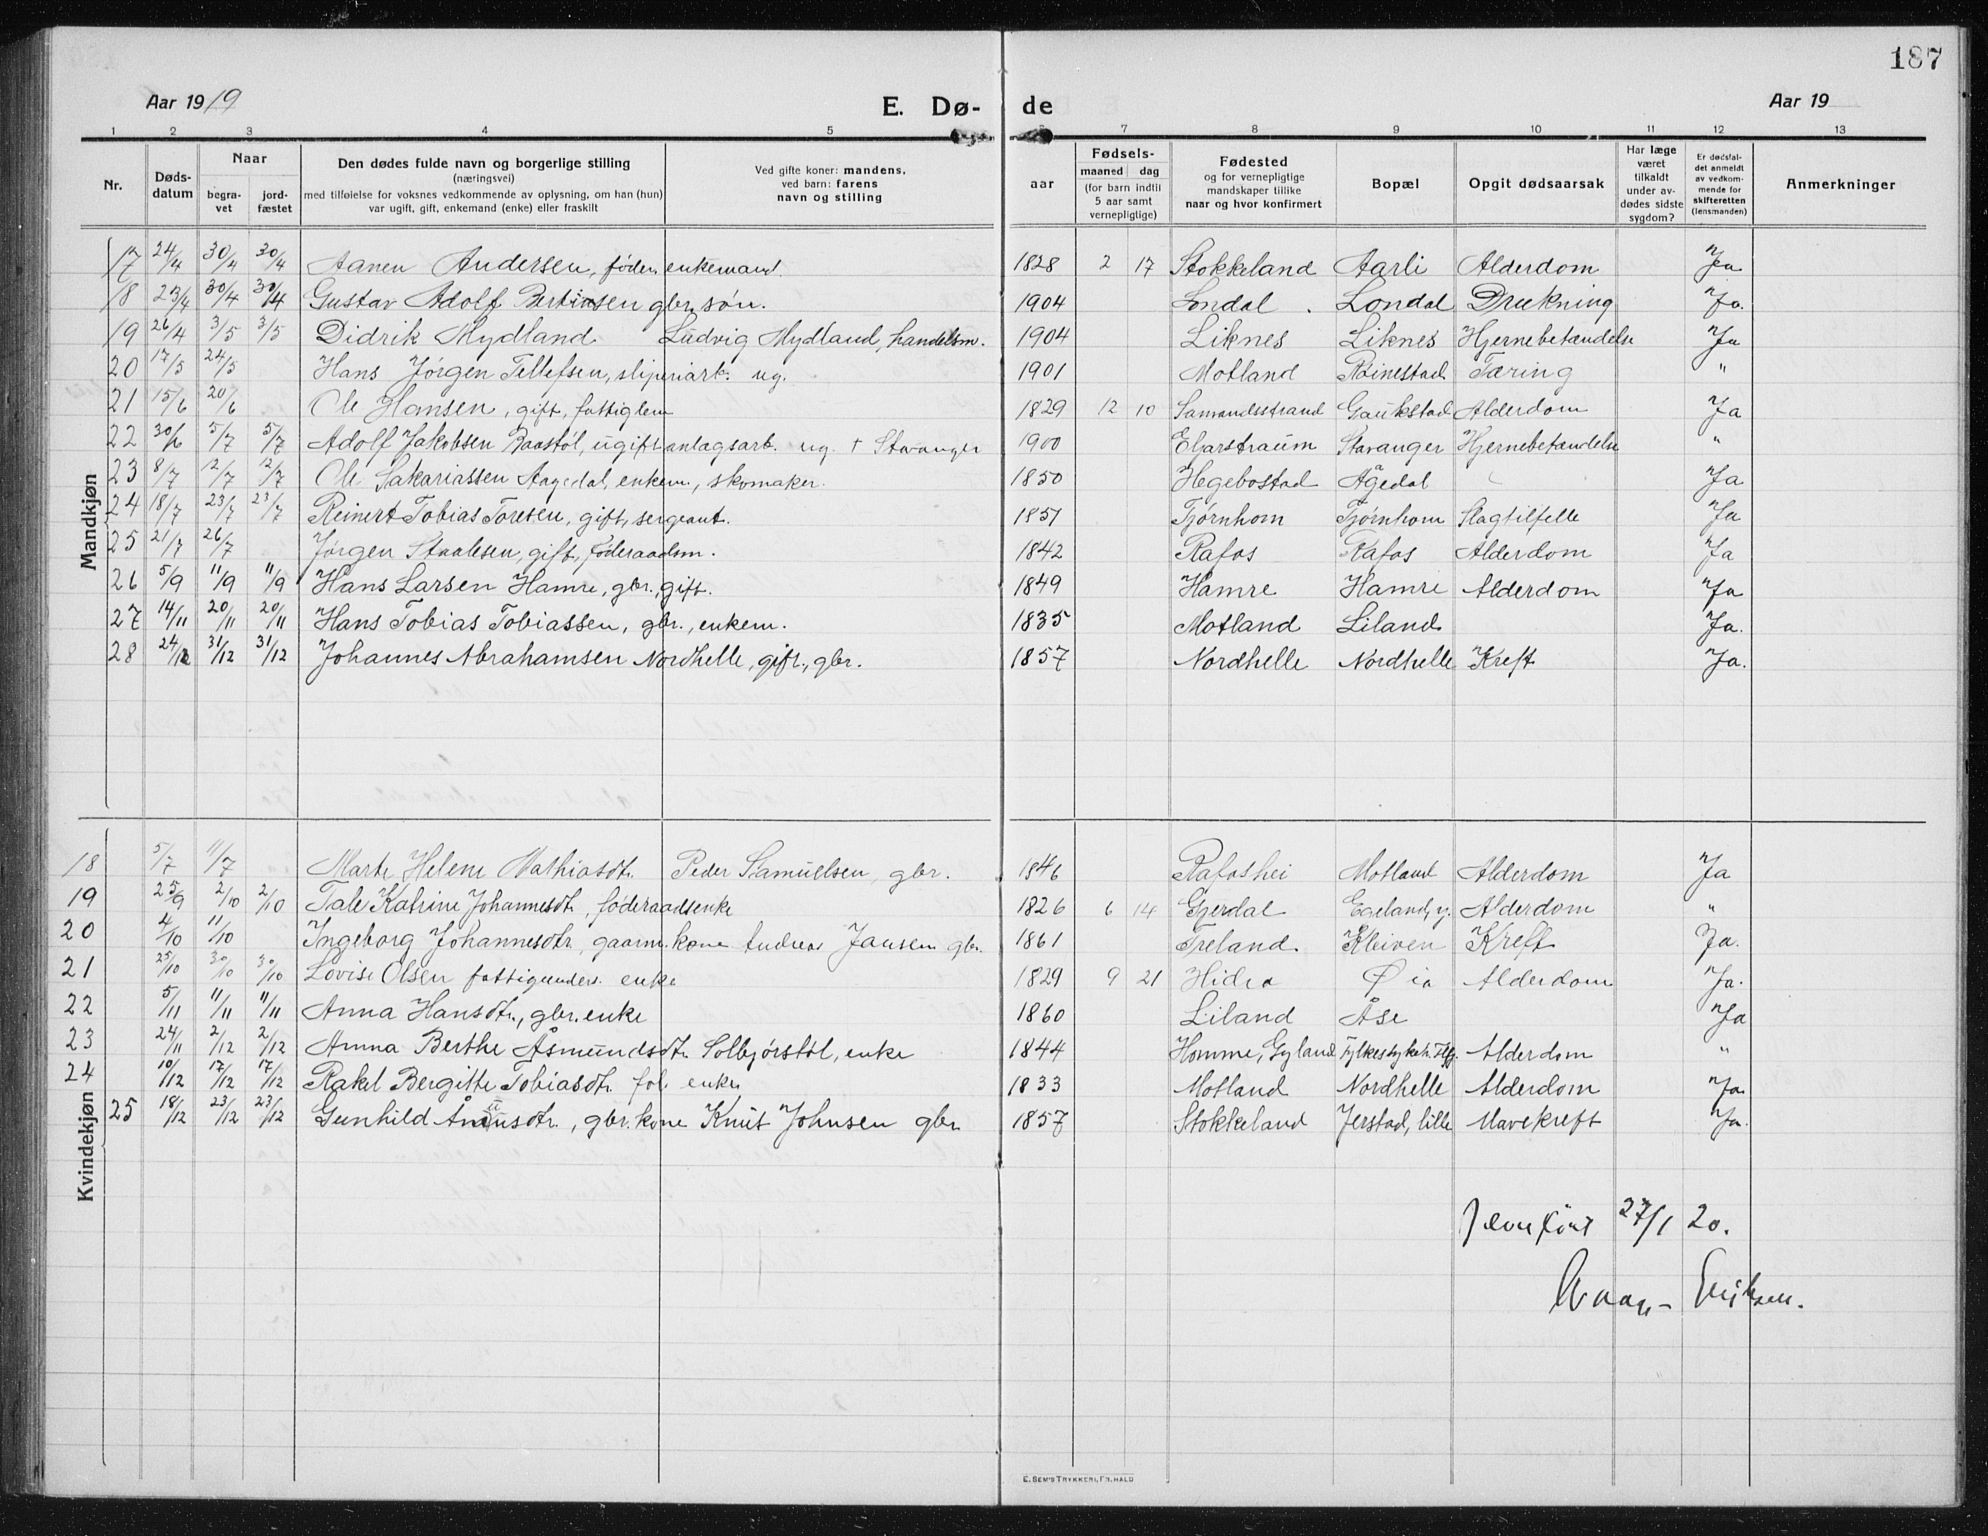 187
Aar 1919 E. Dø- de Aar 19
1 2 3 4 5 6 7 8 9 10 11 12 13
Nr. Døds-datum Naar begra-vet jord-fæstet Den dødes fulde navn og borgerlige stilling (næringsvei) med tilføielse for voksnes vedkommende av oplysning, om han (hun) var ugift, gift, enkemand (enke) eller fraskilt Ved gifte koner: mandens, ved barn: farens navn og stilling aar Fødsels- maaned dag (for barn indtil 5 aar samt vernepligtige) Fødested og for vernepligtige mandskaper tillike naar og hvor konfirmert Bopæl Opgit dødsaarsak Har læge været tilkaldt under av-dødes sidste sygdom? Er dødsfal-det anmeldt av vedkom-mende for skifteretten (lensmanden) Anmerkninger
Mandkjøn
17 24/4 30/4 30/4 Aanen Andersen, føder. enkemand. 1828 2 17 Stokkeland Aarli Alderdom Ja
18 23/4 30/4 30/4 Gustav Adolf Bertinsen gbr. søn. 1904 Londal. Londal Drukning Ja.
19 26/4 3/5 3/5 Didrik Mydland Ludvig Mydland, handelsm. 1904 Liknes Liknes Hjernebetændelse Ja
20 17/5 24/5 Hans Jørgen Tellefsen, sliperiarb. ug. 1901 Motland Reinestad Tæring "
21 15/6 20/6 Ole Hansen, gift, fattiglem 1829 12 10 Samondsstrand Gaukstad Alderdom Ja
22 30/6 5/7 5/7 Adolf Jakobsen Baastøl, ugift anlagsarb. ug. + Stavanger 1900 Egarstraum Stavanger Hjernebetændelse "
23 8/7 12/7 12/7 Ole Sakariassen Aagedal, enkem., skomaker. 1850 Hegebostad Ågedal Ja
24 18/7 23/7 23/7 Reinert Tobias Toresen, gift, sergeant. 1851 Tjørnhom Tjørnhom Slagtilfelle Ja
25 21/7 26/7 Jørgen Staalesen, gift, føderaadsm. 1842 Rafos Rafos Alderdom Ja
26 5/9 11/9 11/9 Hans Larsen Hamre, gbr., gift. 1849 Hamre Hamre Alderdom Ja
27 14/11 20/11 20/11 Hans Tobias Tobiassen, gbr., enkem. 1835 Motland Liland Ja.
28 24/12 31/12 31/12 Johannes Abrahamsen Nordhelle, gift, gbr. 1857 Nordhelle Nordhelle Kreft Ja.
Kvindekjøn
18 5/7 11/7 Marte Helene Mathiasdtr. Peder Samuelsen, gbr. 1846 Rafoshei Motland Alderdom Ja
19 25/9 2/10 2/10 Tale Katrine Johannesdtr, føderaadsenke 1826 6 14 Gjerdal Egeland, y. Alderdom "
20 4/10 11/10 Ingeborg Johannesdtr, gaarm. kone Andreas Jansen gbr. 1861 Treland Kleiven Kreft Ja.
21 25/10 30/10 30/10 Lovise Olsen fattigunders. enke 1829 9 21 Hidra Øia Alderdom Ja.
22 5/11 11/11 11/11 Anna Hansdtr., gbr. enke 1860 Liland Åse Ja
23 24/11 2/12 2/12 Anna Berthe Åsmundsdtr. Solbjørstøl, enke 1844 Homme, Gyland Fylkessykeh. Flfj. Alderdom "
24 10/12 17/12 17/12 Rakel Bergitte Tobiasdtr. fol. enke 1833 Motland Nordhelle Alderdom Ja.
25 18/12 23/12 23/12 Gunhild dtr., gbr. kone Knut Johnsen gbr. 1857 Stokkeland Jerstad, lille Mavekreft Ja.
Jevnført 27/1 20.
Eriksen.
E. SEM'S TRYKKERI, FR.HALD